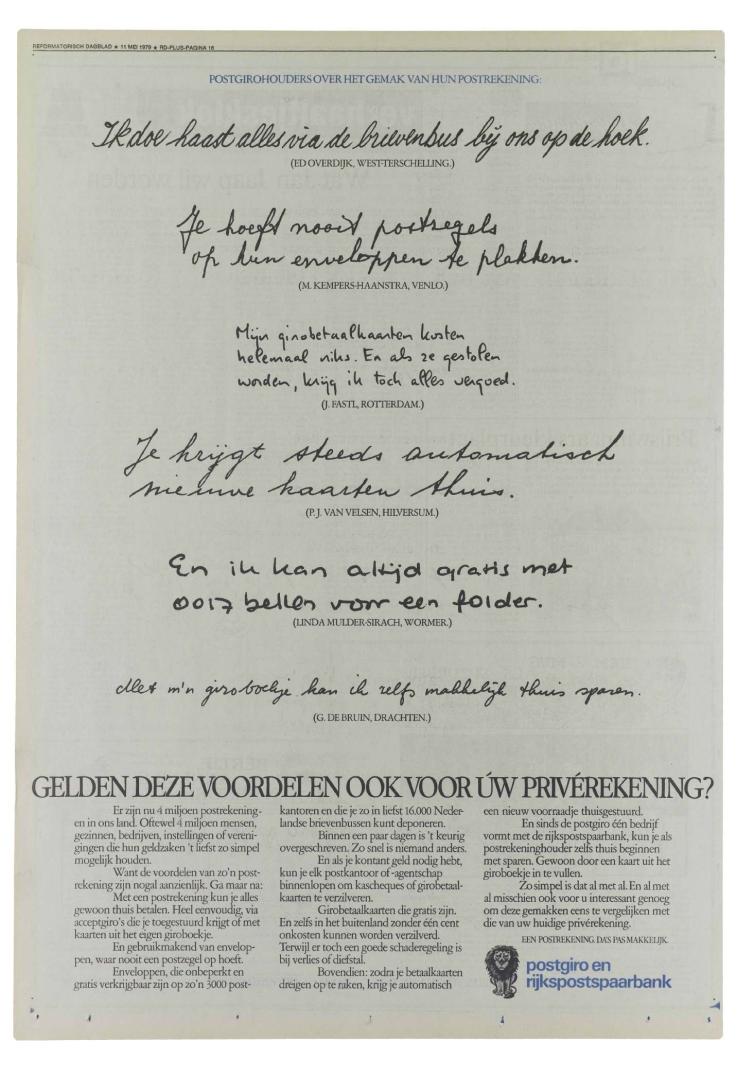 REFORMATORISCH DAGBLAD ★ 11 MEI 1979 ★ RD-PLUS-PAGINA 16
POSTGIROHOUDERS OVER HET GEMAK VAN HUN POSTREKENING:
Ik doe haast alles via de brievenbus bij ons op de hoek.
(ED OVERDIJK, WEST-TERSCHELLING.)
Je hoeft nooit postzegels
op hun enveloppen te plakken.
(M. KEMPERS-HAANSTRA, VENLO.)
Mijn girobetaalkaarten kosten
helemaal niks. En als ze gestolen
worden, krijg ik toch alles vergoed.
(J. FASTL, ROTTERDAM.)
Je krijgt steeds automatisch
nieuwe kaarten thuis.
(P.J. VAN VELSEN, HILVERSUM.)
En ik kan altijd gratis met
0017 bellen voor een folder.
(LINDA MULDER-SIRACH, WORMER.)
Met m'n giroboekje kan ik zelfs makkelijk thuis sparen.
(G. DE BRUIN, DRACHTEN.)
GELDEN DEZE VOORDELEN OOK VOOR ÚW PRIVÉREKENING?
Er zijn nu 4 miljoen postrekening-
en in ons land. Oftewel 4 miljoen mensen,
gezinnen, bedrijven, instellingen of vereni-
gingen die hun geldzaken 't liefst zo simpel
mogelijk houden.
Want de voordelen van zo'n post-
rekening zijn nogal aanzienlijk. Ga maar na:
Met een postrekening kun je alles
gewoon thuis betalen. Heel eenvoudig, via
acceptgiro's die je toegestuurd krijgt of met
kaarten uit het eigen giroboekje.
En gebruikmakend van envelop-
pen, waar nooit een postzegel op hoeft.
Enveloppen, die onbeperkt en
gratis verkrijgbaar zijn op zo'n 3000 post-
kantoren en die je zo in liefst 16.000 Neder-
landse brievenbussen kunt deponeren.
Binnen een paar dagen is 't keurig
overgeschreven. Zo snel is niemand anders.
En als je kontant geld nodig hebt,
kun je elk postkantoor of -agentschap
binnenlopen om kascheques of girobetaal-
kaarten te verzilveren.
Girobetaalkaarten die gratis zijn.
En zelfs in het buitenland zonder één cent
onkosten kunnen worden verzilverd.
Terwijl er toch een goede schaderegeling is
bij verlies of diefstal.
Bovendien: zodra je betaalkaarten
dreigen op te raken, krijg je automatisch
een nieuw voorraadje thuisgestuurd.
En sinds de postgiro één bedrijf
vormt met de rijkspostspaarbank, kun je als
postrekeninghouder zelfs thuis beginnen
met sparen. Gewoon door een kaart uit het
giroboekje in te vullen.
Zo simpel is dat al met al. En al met
al misschien ook voor u interessant genoeg
om deze gemakken eens te vergelijken met
die van uw huidige privérekening.
EEN POSTREKENING. DA'S PAS MAKKELIJK.
postgiro en
rijkspostspaarbank